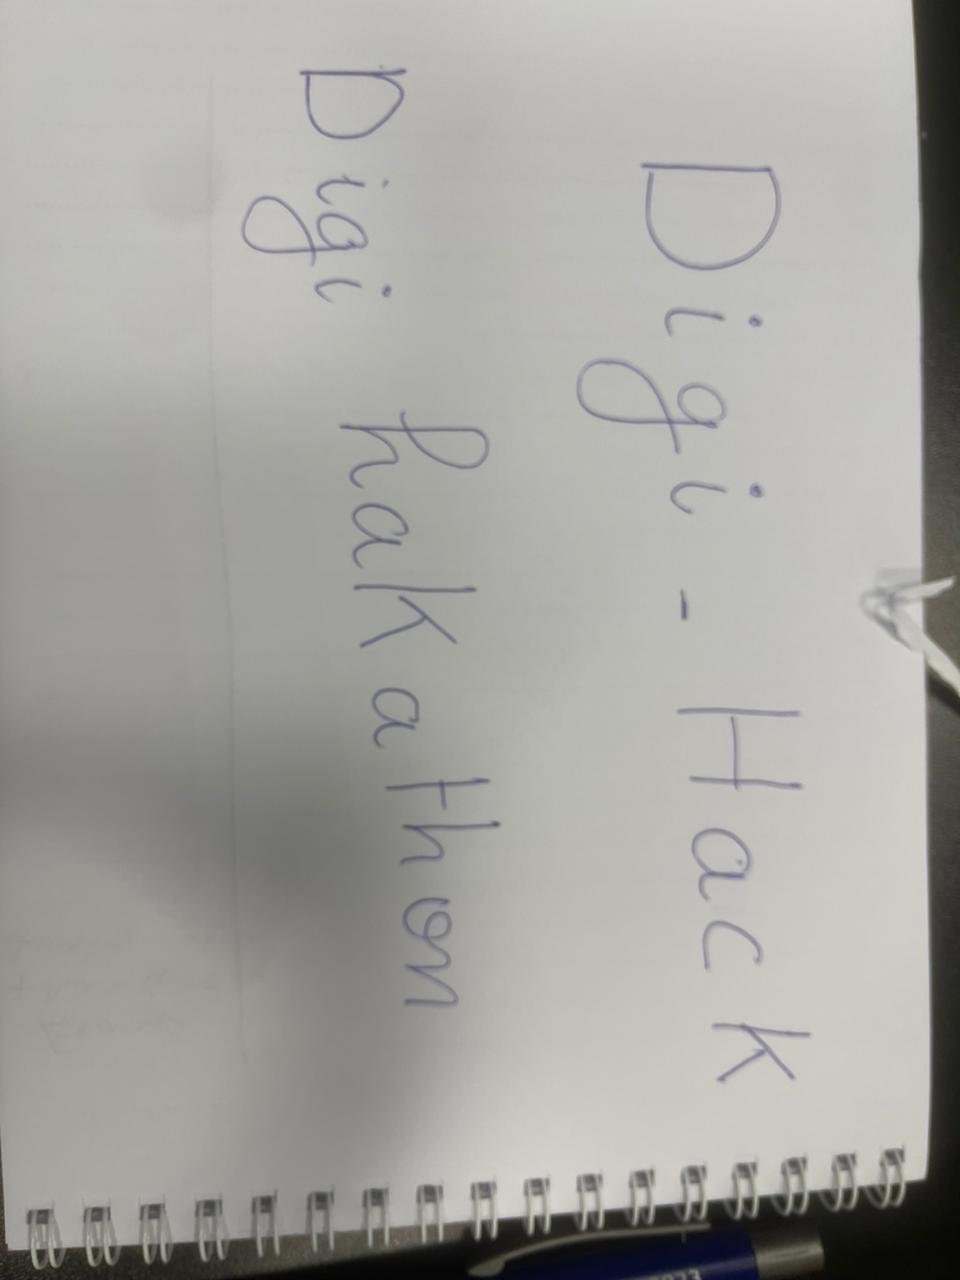 Digi - Hack
Digi hakathon